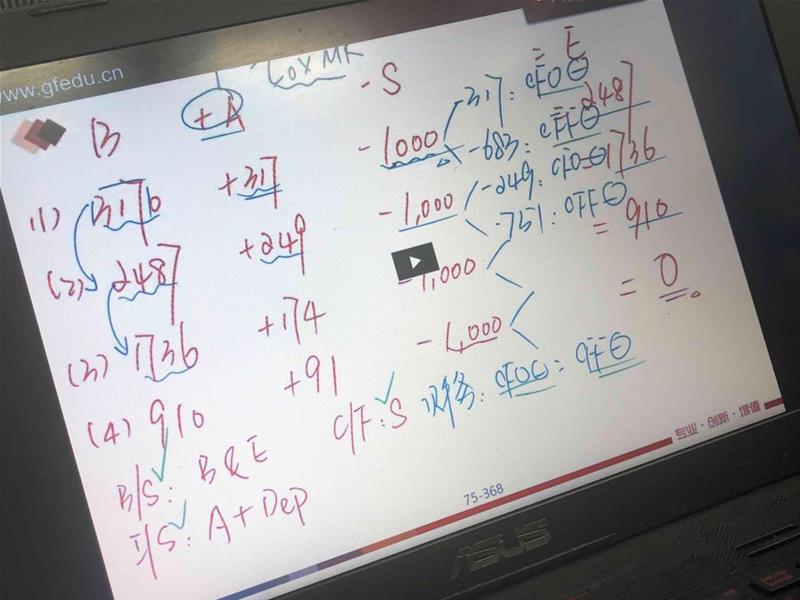 www.gfedu.cn
B +A - S = E
(1) 3170 +317 - 1000 317: CFO⊖ 2487
-683: CFF⊖
(2) 2487 +249 - 1,000 -249: CFO⊖ =1736
-751: CFF⊖
(3) 1736 +174 - 1,000 = 910
(4) 910 +91 - 1,000 = 0
B/S: B & E C/F: S 财务: CFO⊖ = CFF⊖
I/S: A + Dep
专业·创新·增值
75-368
ASUS